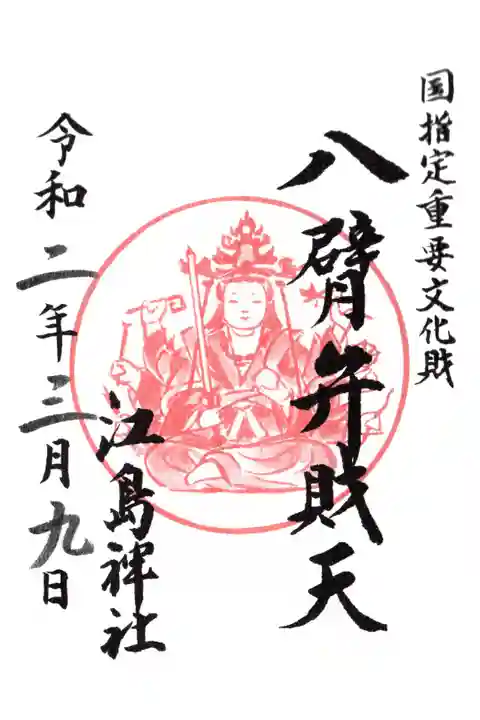 国指定重要文化財
八臂弁財天
江島神社
令和二年三月九日